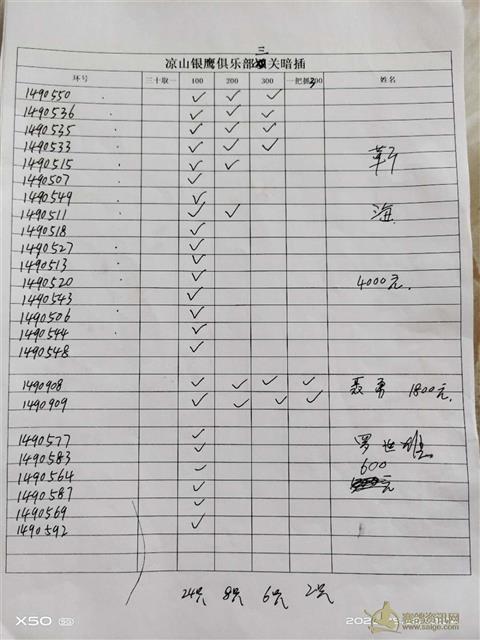 三
凉山银鹰俱乐部关暗插
环号 三十取一 100 200 300 一把抓300 姓名
1490550 ✓ ✓ ✓
1490536 ✓ ✓ ✓
1490535 ✓ ✓ ✓
1490533 ✓ ✓ ✓ 靳
1490515 ✓ ✓
1490507 ✓
1490549 ✓
1490511 ✓ ✓ 海
1490518 ✓
1490527 ✓
1490513 ✓
1490520 ✓ 4000元.
1490543 ✓
1490506 ✓
1490544 ✓
1490548 ✓
1490908 ✓ ✓ ✓ ✓ 聂勇 1800元.
1490909 ✓ ✓ ✓ ✓
1490577 ✓ 罗世雄
1490583 ✓
1490564 ✓ 600
1490587 ✓ 元
1490569 ✓
1490592 ✓
24只 8只 6只 2只
X50 5G
赛鸽资讯网
www.saige.com